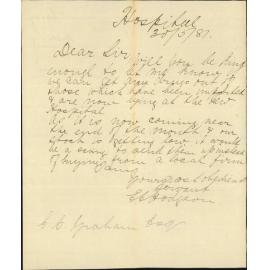 Hospital
25/5/87.
Dear Sir Will you be kind
enough to let me know if
we can get new drugs out of
those which have been imported
& are now lying at the New
Hospital
As it is now coming near
the end of the month & our
stock is getting low it would
be a saving to send them up instead
of buying from a local firm
Yours most obedient
Servant
E. Hodgson
G. C. Graham Esq